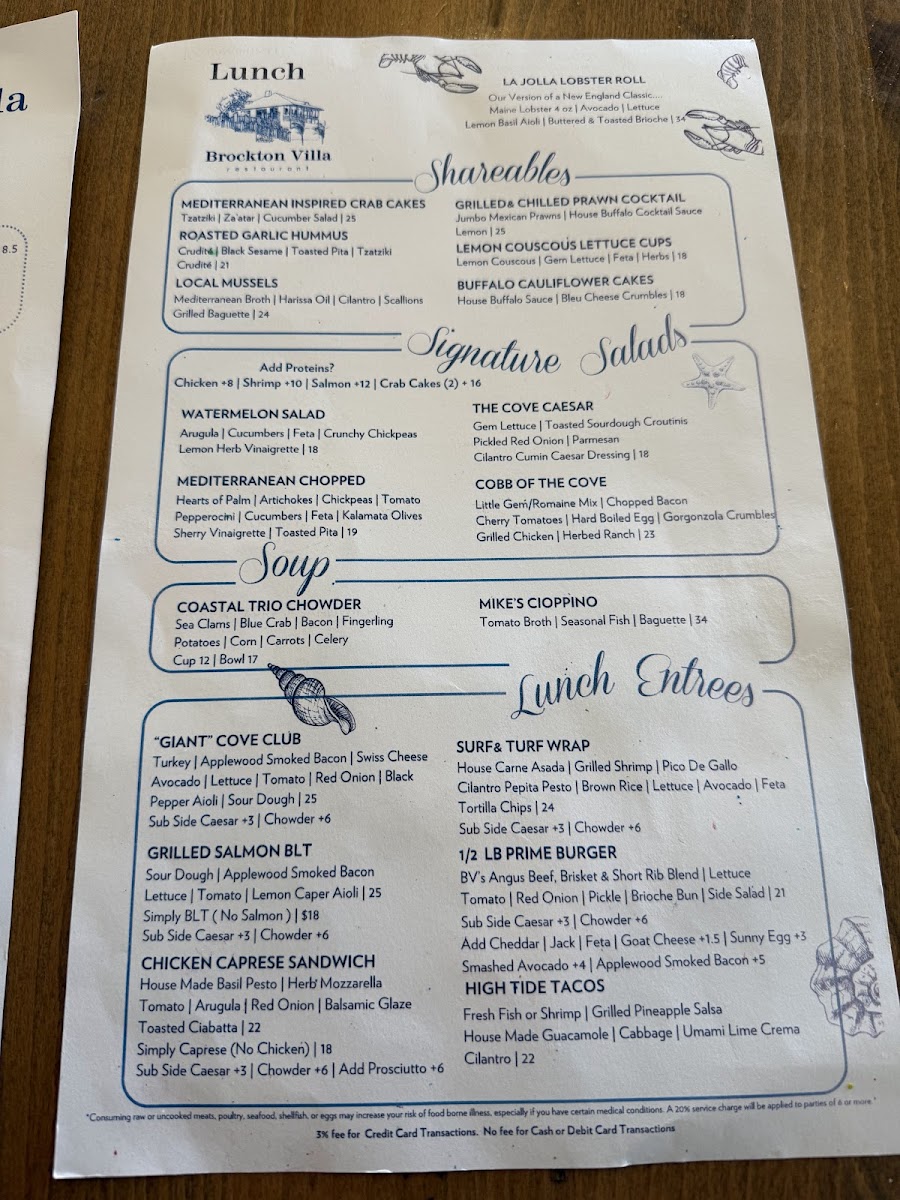 la
8.5
Lunch
Brockton Villa
restaurant
LA JOLLA LOBSTER ROLL
Our Version of a New England Classic....
Maine Lobster 4 oz | Avocado | Lettuce
Lemon Basil Aioli | Buttered & Toasted Brioche | 34
Shareables
MEDITERRANEAN INSPIRED CRAB CAKES
Tzatziki | Za'atar | Cucumber Salad | 25
ROASTED GARLIC HUMMUS
Crudité | Black Sesame | Toasted Pita | Tzatziki
Crudité | 21
LOCAL MUSSELS
Mediterranean Broth | Harissa Oil | Cilantro | Scallions
Grilled Baguette | 24
GRILLED& CHILLED PRAWN COCKTAIL
Jumbo Mexican Prawns | House Buffalo Cocktail Sauce
Lemon | 25
LEMON COUSCOUS LETTUCE CUPS
Lemon Couscous | Gem Lettuce | Feta | Herbs | 18
BUFFALO CAULIFLOWER CAKES
House Buffalo Sauce | Bleu Cheese Crumbles | 18
Signature Salads
Add Proteins?
Chicken +8 | Shrimp +10 | Salmon +12 | Crab Cakes (2) + 16
WATERMELON SALAD
Arugula | Cucumbers | Feta | Crunchy Chickpeas
Lemon Herb Vinaigrette | 18
MEDITERRANEAN CHOPPED
Hearts of Palm | Artichokes | Chickpeas | Tomato
Pepperocini | Cucumbers | Feta | Kalamata Olives
Sherry Vinaigrette | Toasted Pita | 19
THE COVE CAESAR
Gem Lettuce | Toasted Sourdough Croutinis
Pickled Red Onion | Parmesan
Cilantro Cumin Caesar Dressing | 18
COBB OF THE COVE
Little Gem/Romaine Mix | Chopped Bacon
Cherry Tomatoes | Hard Boiled Egg | Gorgonzola Crumbles
Grilled Chicken | Herbed Ranch | 23
Soup
COASTAL TRIO CHOWDER
Sea Clams | Blue Crab | Bacon | Fingerling
Potatoes | Corn | Carrots | Celery
Cup 12 | Bowl 17
MIKE'S CIOPPINO
Tomato Broth | Seasonal Fish | Baguette | 34
Lunch Entrees
"GIANT" COVE CLUB
Turkey | Applewood Smoked Bacon | Swiss Cheese
Avocado | Lettuce | Tomato | Red Onion | Black
Pepper Aioli | Sour Dough | 25
Sub Side Caesar +3 | Chowder +6
GRILLED SALMON BLT
Sour Dough | Applewood Smoked Bacon
Lettuce | Tomato | Lemon Caper Aioli | 25
Simply BLT ( No Salmon ) | $18
Sub Side Caesar +3 | Chowder +6
CHICKEN CAPRESE SANDWICH
House Made Basil Pesto | Herb Mozzarella
Tomato | Arugula | Red Onion | Balsamic Glaze
Toasted Ciabatta | 22
Simply Caprese (No Chicken) | 18
Sub Side Caesar +3 | Chowder +6 | Add Prosciutto +6
SURF& TURF WRAP
House Carne Asada | Grilled Shrimp | Pico De Gallo
Cilantro Pepita Pesto | Brown Rice | Lettuce | Avocado | Feta
Tortilla Chips | 24
Sub Side Caesar +3 | Chowder +6
1/2 LB PRIME BURGER
BV's Angus Beef, Brisket & Short Rib Blend | Lettuce
Tomato | Red Onion | Pickle | Brioche Bun | Side Salad | 21
Sub Side Caesar +3 | Chowder +6
Add Cheddar | Jack | Feta | Goat Cheese +1.5 | Sunny Egg +3
Smashed Avocado +4 | Applewood Smoked Bacon +5
HIGH TIDE TACOS
Fresh Fish or Shrimp | Grilled Pineapple Salsa
House Made Guacamole | Cabbage | Umami Lime Crema
Cilantro | 22
*Consuming raw or uncooked meats, poultry, seafood, shellfish, or eggs may increase your risk of food borne illness, especially if you have certain medical conditions. A 20% service charge will be applied to parties of 6 or more.*
3% fee for Credit Card Transactions. No fee for Cash or Debit Card Transactions